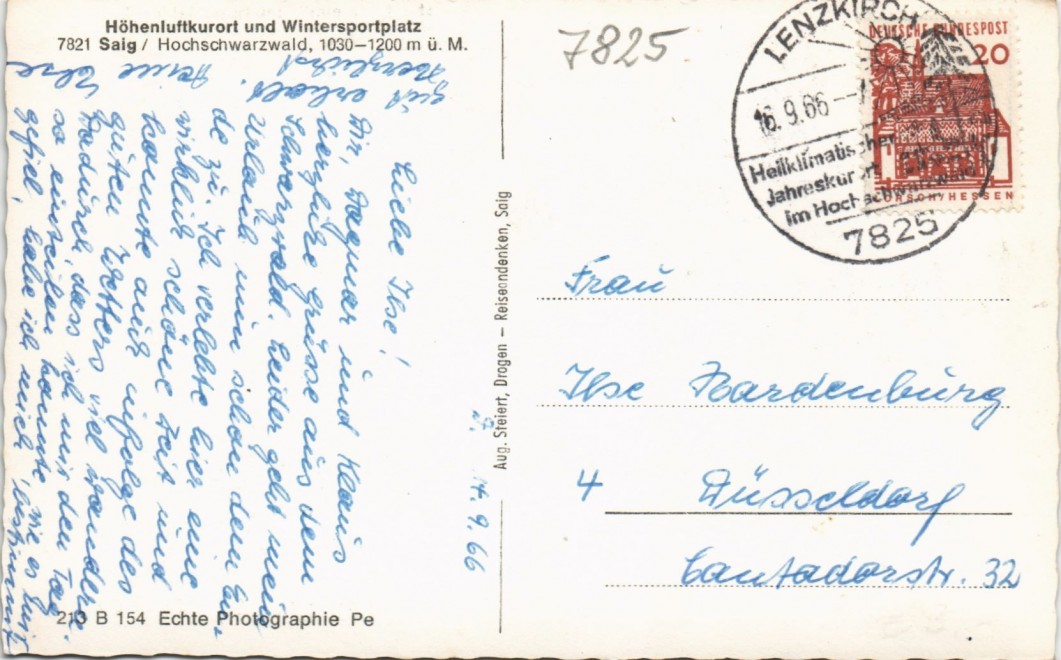 Höhenluftkurort und Wintersportplatz
7821 Saig / Hochschwarzwald, 1030–1200 m ü. M.
7825
LENZKIRCH
16.9.66
Heilklimatischer
Jahreskurort
im Hochschwarzwald
7825
DEUTSCHE BUNDESPOST
20
LORSCH/HESSEN
14. 9. 66
Liebe Ilse!
Dir, Dagmar und Klaus
herzliche Grüsse aus dem
Schwarzwald. Leider geht mein
Urlaub nun schon dem En-
de zu. Ich verlebte hier eine
wirklich schöne Zeit und
konnte auch infolge des
guten Wetters viel wandern.
Dadurch, dass ich mir den Tag
so einteilen konnte, wie es mir
gefiel, habe ich mich bestimmt
gut erholt.
Herzlichst
Deine Else
Aug. Steiert, Drogen – Reiseandenken, Saig
Frau
Ilse Hardenburg
4 Düsseldorf
Cantadorstr. 32
213 B 154 Echte Photographie Pe